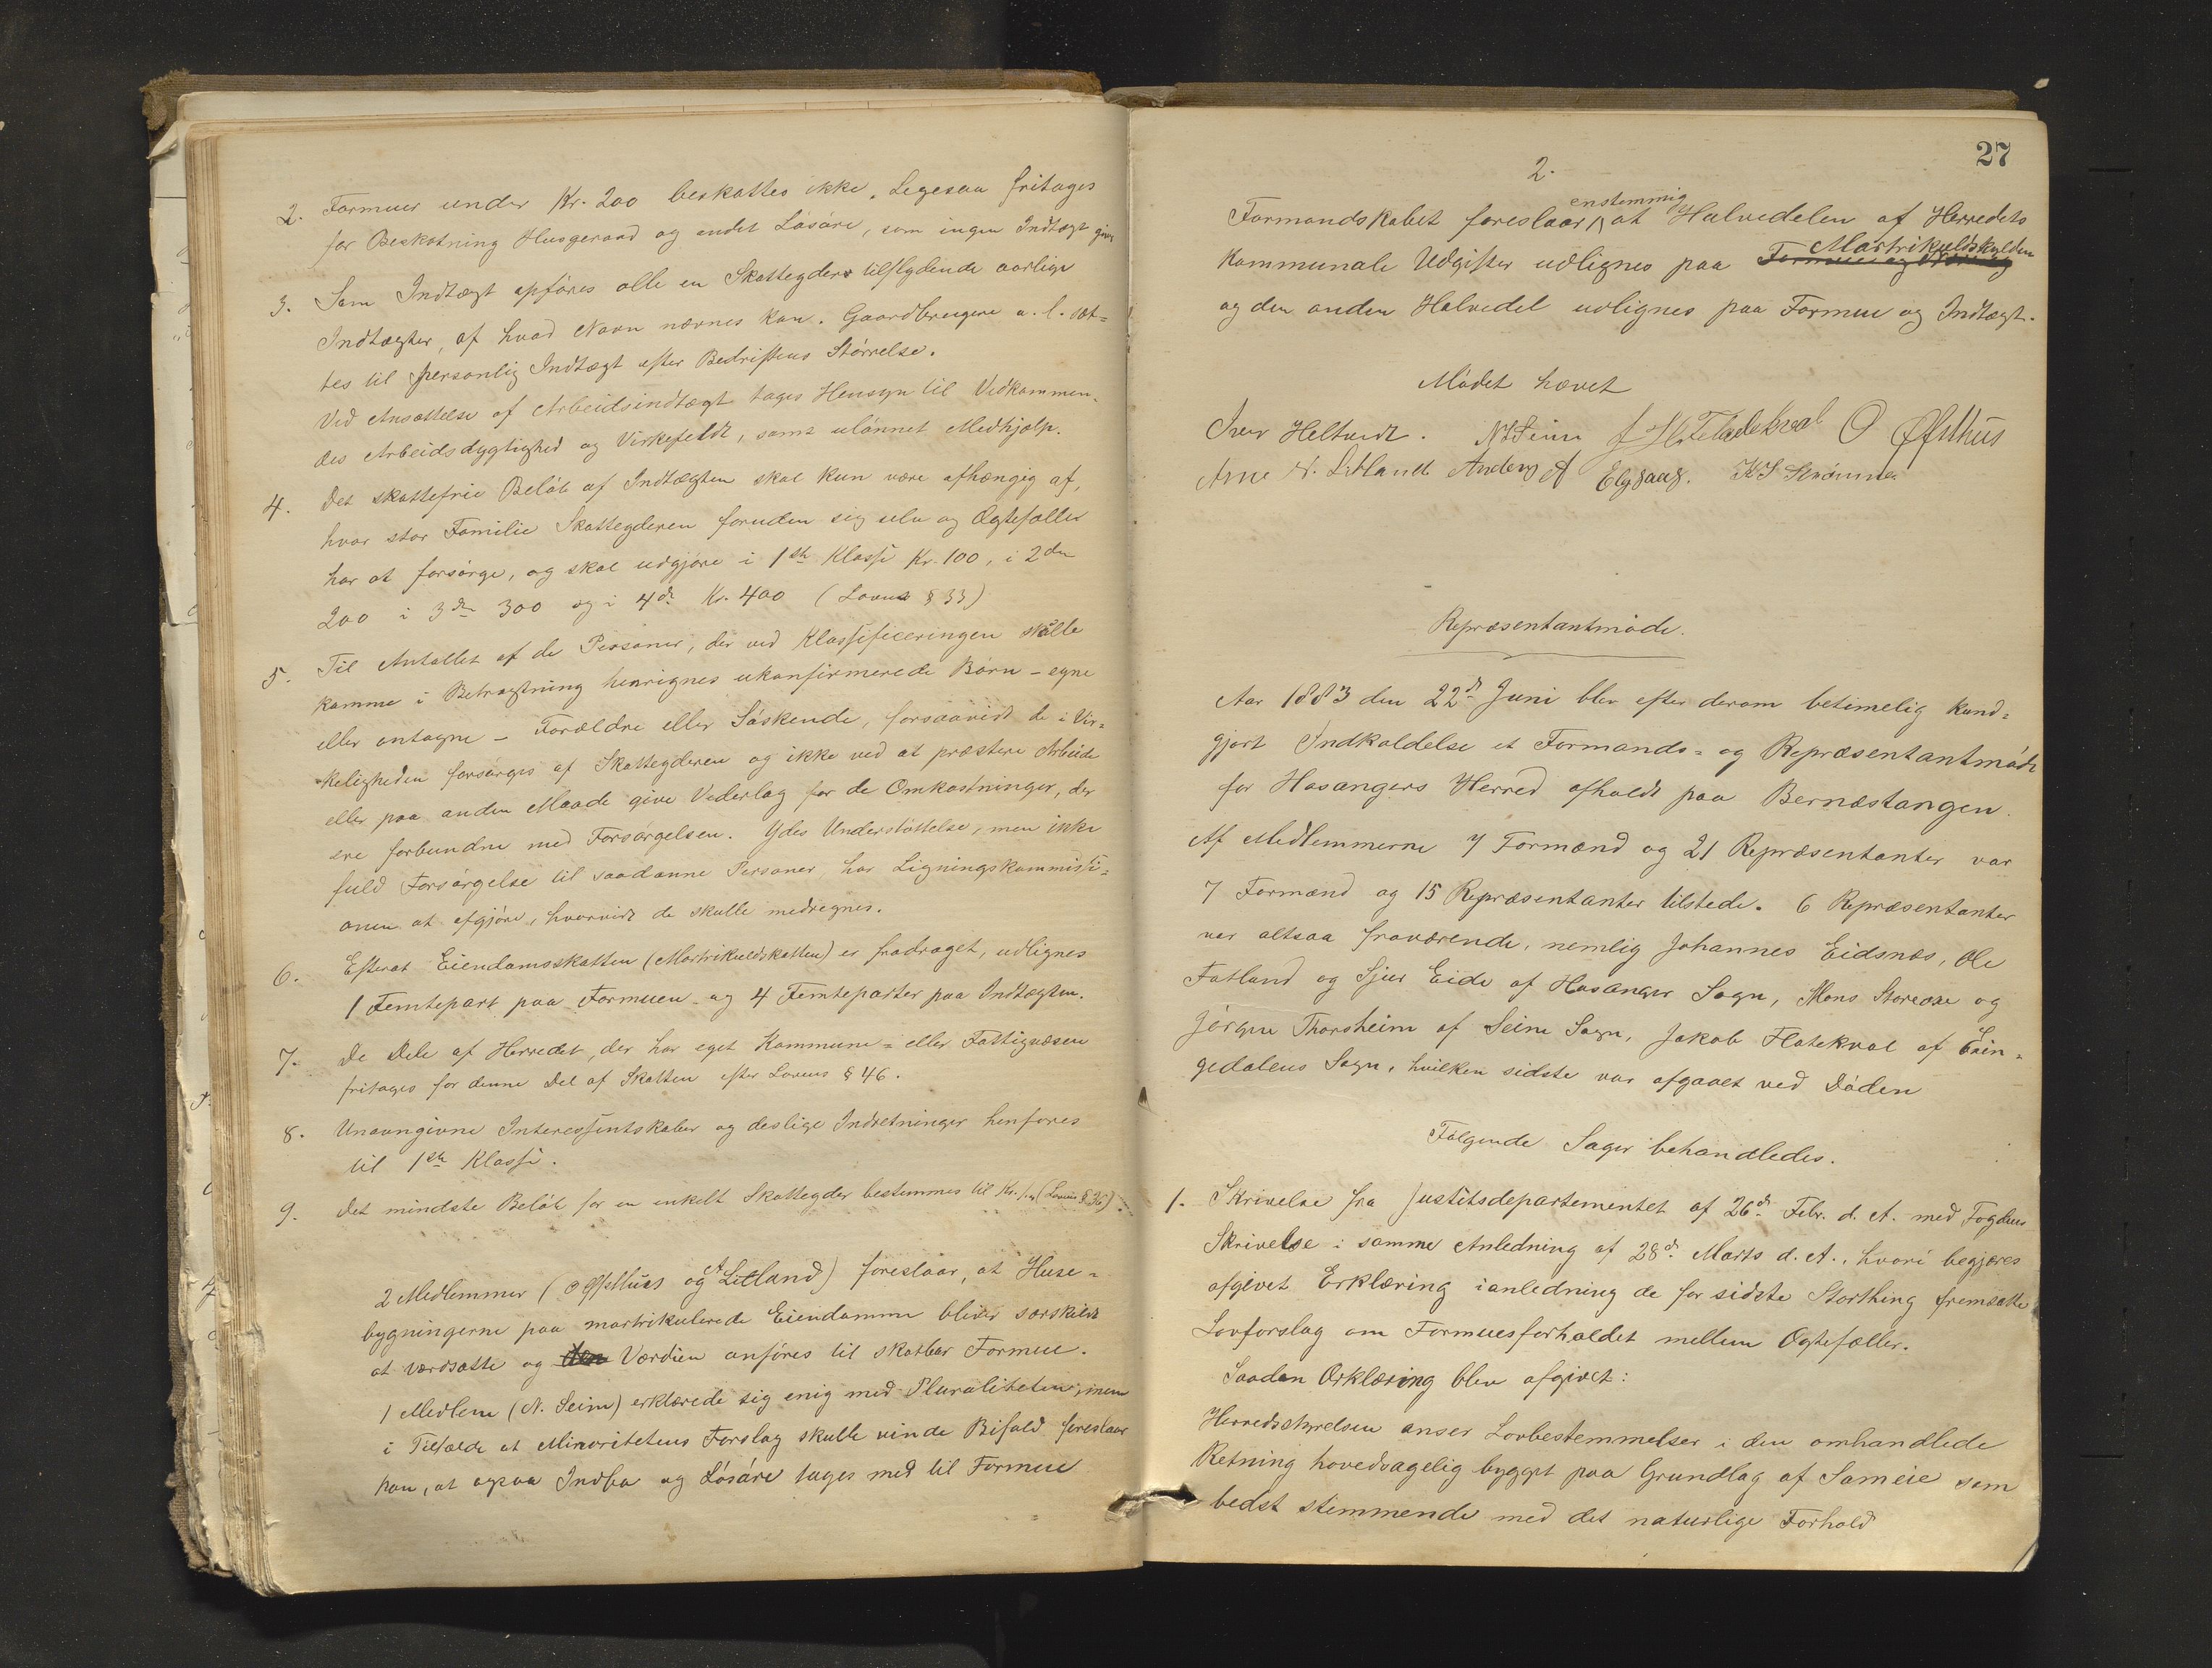 2. Formuer under Kr. 200 beskattes ikke. Ligesaa fritages
for Beskatning Husgeraad og andet Løsøre, som ingen Indtægt giver
3. Som Indtægt opføres alle en Skatteyder tilflydende aarlige
Indtægter, af hvad Navn nævnes kan. Gaardbrugere a. l. sæt=
tes til personlig Indtægt efter Bedriftens Størrelse.
Ved Ansættelse af Arbeidsindtægt tages Hensyn til Vedkommen-
des Arbeidsdygtighed og Virkefeldt, samt ulønnet Medhjælp.
4. Det skattefrie Beløb af Indtægten skal kun være afhængig af,
hvor stor Familie Skatteyderen foruden sig selv og Ægtefælle
har at forsørge, og skal udgjøre i 1ste Klasse Kr. 100, i 2den
200 i 3die 300 og i 4de Kr. 400 (Lovens § 33)
5. Til Antallet af de Personer, der ved Klassificeringen skulle
komme i Betragtning henregnes ukonfirmerede Børn - egne
eller antagne - Forældre eller Søskende, forsaavidt de i Vir=
keligheden forsørges af Skatteyderen og ikke ved at præstere Arbeide
eller paa anden Maade give Vederlag for de Omkostninger, der
ere forbundne med Forsørgelsen. Ydes Understøttelse, men ikke
fuld Forsørgelse til saadanne Personer, har Ligningskommissi=
onen at afgjøre, hvorvidt de skulle medregnes.
6. Efterat Eiendomsskatten (Martrikuldskatten) er fradraget, udlignes
1 Femtepart paa Formuen og 4 Femteparter paa Indtægten.
7. De Dele af Herredet, der har eget Kommune= eller Fattigvæsen
fritages for denne Del af Skatten efter Lovens § 46.
8. Unavngivne Interessentskaber og deslige Indretninger henføres
til 1ste Klasse.
9. Det mindste Beløb for en enkelt Skatteyder bestemmes til Kr. (Lovens § 36).
2 Medlemmer (O Øfsthus og A Litland) foreslaar, at Huse=
bygningerne paa martrikulerede Eiendomme bliver særskildt
at værdsætte og den Værdien anføres til skatbar Formue.
1 Medlem (N. Seim) erklærede sig enig med Pluraliteten, men
i Tilfælde at Minoritetens Forslag skulle vinde Bifald foreslaar
han, at ogsaa Indbo og Løsøre tages med til Formue
27
2.
enstemmig
Formandskabet foreslaar at Halvedelen af Herredets
Martrikulskylden
Kommunale Udgifter udlignes paa Formue og
og den anden Halvedel udlignes paa Formue og Indtægt.
Mødet hævet
Iver Heltvedt. N Seim J H Fladekval O Øfsthus
Arne N. Litland Anders A Elsaas. K S Strømme
Repræsentantmøde.
Aar 1883 den 22de Juni blev efter derom betimelig kund=
gjort Indkaldelse et Formands= og Repræsentantmøde
for Hosangers Herred afholdt paa Bernæstangen.
Af Medlemmerne 7 Formænd og 21 Repræsentanter var
7 Formænd og 15 Repræsentanter tilstede. 6 Repræsentanter
var altsaa fraværende, nemlig Johannes Eidsnæs, Ole
Fatland og Sjur Eide af Hosanger Sogn, Mons Storeose og
Jørgen Thorsheim af Seim Sogn, Jakob Flatekval af Exin=
gedalens Sogn, hvilken sidste var afgaaet ved Døden
Følgende Sager behandledes.
1. Skrivelse fra Justitsdepartementet af 26de Febr. d. A. med Fogdens
Skrivelse i samme Anledning af 28de Marts d. A., hvori begjæres
afgivet Erklæring ianledning de for sidste Storthing fremsatte
Lovforslag om Formuesforholdet mellem Ægtefæller.
Saadan Erklæring blev afgivet:
Herredsstyrelsen anser Lovbestemmelser i den omhandlede
Retning hovedsagelig bygget paa Grundlag af Sameie som
bedst stemmende med det naturlige Forhold